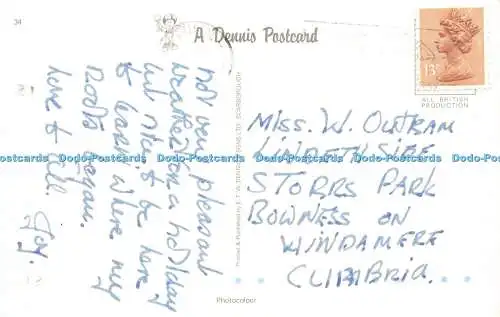 34
A Dennis Postcard
13
ALL BRITISH
PRODUCTION
Not very pleasant
weather for a holiday
but nice to be here
to learn where my
roots began.
love to all.
Joy.
Printed & Published in J. T. W. DENNIS & SONS LTD. SCARBOROUGH
MISS. W. OUTRAM
LINDETH SIDE
STORRS PARK
BOWNESS ON
WINDAMERE
CUMBRIA.
Photocolour
Dodo-Postcards Dodo-Postcards Dodo-Postcards Dodo-Postcards Dodo-Postcards Dodo-Postcards